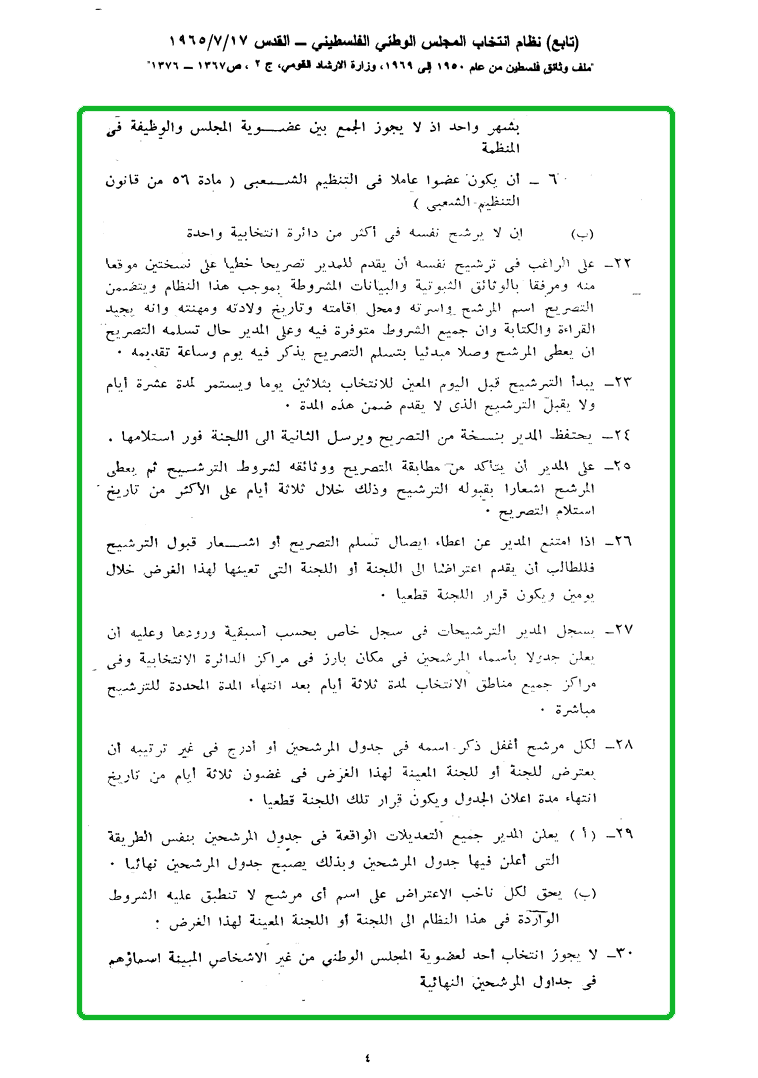 (تابع) نظام انتخاب المجلس الوطني الفلسطيني ــ القدس ١٩٦٥/٧/١٧
"ملف وثائق فلسطين من عام ١٩٥٠ إلى ١٩٦٩، وزارة الارشاد القومي، ج ٢ ، ص١٣٦٧ ــ ١٣٧٦"
بشهر واحد اذ لا يجوز الجمع بين عضوية المجلس والوظيفة فى
المنظمة
٦ ــ أن يكون عضوا عاملا فى التنظيم الشعبى ( مادة ٥٦ من قانون
التنظيم الشعبى )
(ب) إن لا يرشح نفسه فى أكثر من دائرة انتخابية واحدة
٢٢ــ على الراغب فى ترشيح نفسه أن يقدم للمدير تصريحا خطيا على نسختين موقعا
منه ومرفقا بالوثائق الثبوتية والبيانات المشروطة بموجب هذا النظام ويتضمن
التصريح اسم المرشح واسرته ومحل اقامته وتاريخ ولادته ومهنته وانه يجيد
القراءة والكتابة وان جميع الشروط متوفرة فيه وعلى المدير حال تسلمه التصريح
ان يعطى المرشح وصلا مبدئيا بتسلم التصريح يذكر فيه يوم وساعة تقديمه ٠
٢٣ــ يبدأ الترشيح قبل اليوم المعين للانتخاب بثلاثين يوما ويستمر لمدة عشرة أيام
ولا يقبل الترشيح الذى لا يقدم ضمن هذه المدة ٠
٢٤ــ يحتفظ المدير بنسخة من التصريح ويرسل الثانية الى اللجنة فور استلامها .
٢٥ــ على المدير أن يتأكد من مطابقة التصريح ووثائقه لشروط الترشيح ثم يعطى
المرشح اشعارا بقبوله الترشيح وذلك خلال ثلاثة أيام على الأكثر من تاريخ
استلام التصريح ٠
٢٦ــ اذا امتنع المدير عن اعطاء ايصال تسلم التصريح أو اشعار قبول الترشيح
فللطالب أن يقدم اعتراضا الى اللجنة أو اللجنة التى تعينها لهذا الغرض خلال
يومين ويكون قرار اللجنة قطعيا ٠
٢٧ــ يسجل المدير الترشيحات فى سجل خاص بحسب أسبقية ورودها وعليه أن
يعلن جدولا بأسماء المرشحين فى مكان بارز فى مراكز الدائرة الانتخابية وفى
مراكز جميع مناطق الانتخاب لمدة ثلاثة أيام بعد انتهاء المدة المحددة للترشيح
مباشرة ٠
٢٨ــ لكل مرشح أغفل ذكر اسمه فى جدول المرشحين أو أدرج فى غير ترتيبه أن
يعترض للجنة أو للجنة المعينة لهذا الغرض فى غضون ثلاثة أيام من تاريخ
انتهاء مدة اعلان الجدول ويكون قرار تلك اللجنة قطعيا ٠
٢٩ــ ( أ ) يعلن المدير جميع التعديلات الواقعة فى جدول المرشحين بنفس الطريقة
التى أعلن فيها جدول المرشحين وبذلك يصبح جدول المرشحين نهائيا ٠
(ب) يحق لكل ناخب الاعتراض على اسم أى مرشح لا تنطبق عليه الشروط
الواردة فى هذا النظام الى اللجنة أو اللجنة المعينة لهذا الغرض ٠
٣٠ــ لا يجوز انتخاب أحد لعضوية المجلس الوطني من غير الاشخاص المبينة اسماؤهم
فى جداول المرشحين النهائية
٤